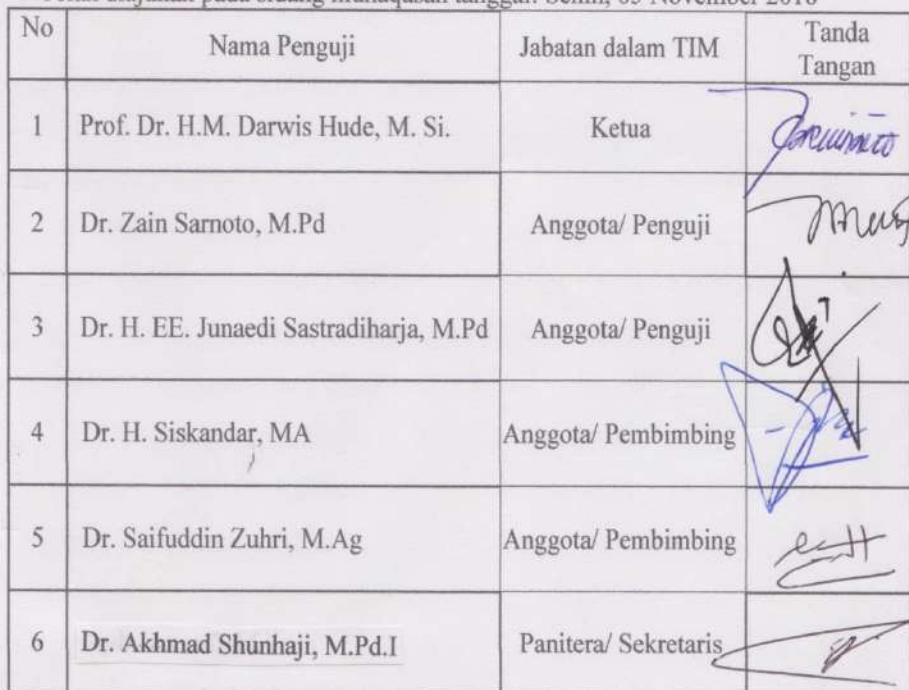 No Nama Penguji Jabatan dalam TIM Tanda
Tangan
1 Prof. Dr. H.M. Darwis Hude, M. Si. Ketua
2 Dr. Zain Sarnoto, M.Pd Anggota/ Penguji
3 Dr. H. EE. Junaedi Sastradiharja, M.Pd Anggota/ Penguji
4 Dr. H. Siskandar, MA Anggota/ Pembimbing
5 Dr. Saifuddin Zuhri, M.Ag Anggota/ Pembimbing
6 Dr. Akhmad Shunhaji, M.Pd.I Panitera/ Sekretaris